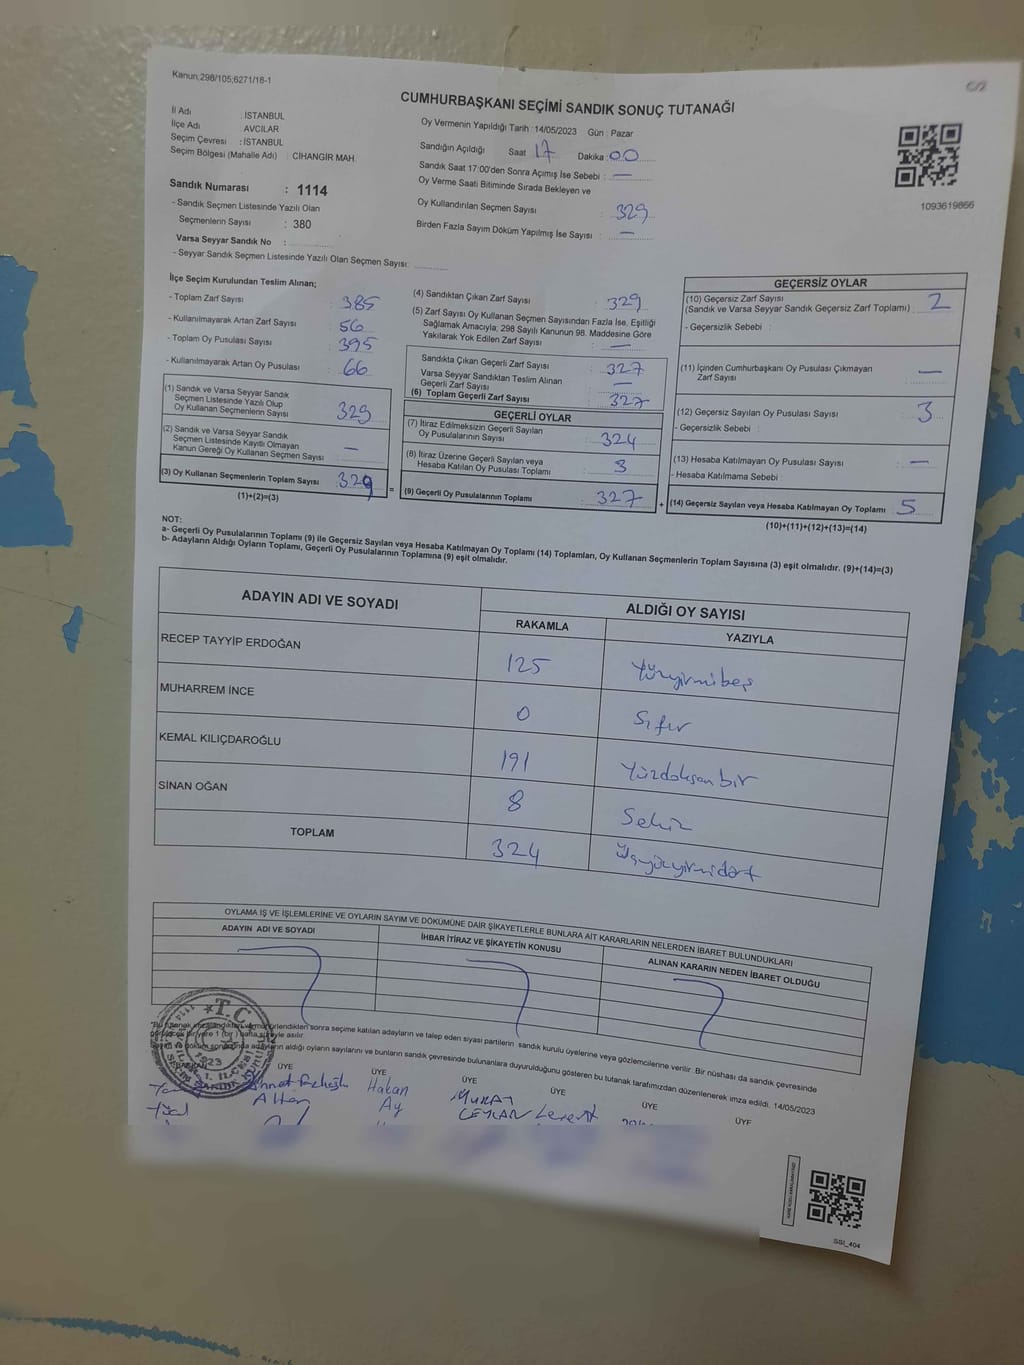 Kanun;298/105;6271/18-1
CUMHURBAŞKANI SEÇİMİ SANDIK SONUÇ TUTANAĞI
İl Adı : İSTANBUL
İlçe Adı AVCILAR
Seçim Çevresi : İSTANBUL
Seçim Bölgesi (Mahalle Adı) : CIHANGIR MAH.
Sandık Numarası : 1114
- Sandık Seçmen Listesinde Yazılı Olan
Seçmenlerin Sayısı : 380
Varsa Seyyar Sandık No :
- Seyyar Sandık Seçmen Listesinde Yazılı Olan Seçmen Sayısı:
Oy Vermenin Yapıldığı Tarih :14/05/2023 Gün : Pazar
Sandığın Açıldığı Saat 17 Dakika :00
Sandık Saat 17:00'den Sonra Açımış İse Sebebi : —
Oy Verme Saati Bitiminde Sırada Bekleyen ve
Oy Kullandırılan Seçmen Sayısı : 329
Birden Fazla Sayım Döküm Yapılmış İse Sayısı : —
1093619866
İlçe Seçim Kurulundan Teslim Alınan;
- Toplam Zarf Sayısı : 385
- Kullanılmayarak Artan Zarf Sayısı : 56
- Toplam Oy Pusulası Sayısı : 395
- Kullanılmayarak Artan Oy Pusulası : 66
(1) Sandık ve Varsa Seyyar Sandık
Seçmen Listesinde Yazılı Olup
Oy Kullanan Seçmenlerin Sayısı 329
(2) Sandık ve Varsa Seyyar Sandık
Seçmen Listesinde Kayıtlı Olmayan
Kanun Gereği Oy Kullanan Seçmen Sayısı : —
(3) Oy Kullanan Seçmenlerin Toplam Sayısı 329
(1)+(2)=(3)
(4) Sandıktan Çıkan Zarf Sayısı : 329
(5) Zarf Sayısı Oy Kullanan Seçmen Sayısından Fazla İse, Eşitliği
Sağlamak Amacıyla, 298 Sayılı Kanunun 98. Maddesine Göre
Yakılarak Yok Edilen Zarf Sayısı : —
Sandıkta Çıkan Geçerli Zarf Sayısı : 327
Varsa Seyyar Sandıktan Teslim Alınan
Geçerli Zarf Sayısı : —
(6) Toplam Geçerli Zarf Sayısı : 327
GEÇERLİ OYLAR
(7) İtiraz Edilmeksizin Geçerli Sayılan
Oy Pusulalarının Sayısı : 324
(8) İtiraz Üzerine Geçerli Sayılan veya
Hesaba Katılan Oy Pusulası Toplamı : 3
= (9) Geçerli Oy Pusulalarının Toplamı : 327
GEÇERSİZ OYLAR
(10) Geçersiz Zarf Sayısı
(Sandık ve Varsa Seyyar Sandık Geçersiz Zarf Toplamı) : 2
- Geçersizlik Sebebi :
(11) İçinden Cumhurbaşkanı Oy Pusulası Çıkmayan
Zarf Sayısı : —
(12) Geçersiz Sayılan Oy Pusulası Sayısı : 3
- Geçersizlik Sebebi :
(13) Hesaba Katılmayan Oy Pusulası Sayısı : —
- Hesaba Katılmama Sebebi :
+ (14) Geçersiz Sayılan veya Hesaba Katılmayan Oy Toplamı : 5
(10)+(11)+(12)+(13)=(14)
NOT:
a- Geçerli Oy Pusulalarının Toplamı (9) ile Geçersiz Sayılan veya Hesaba Katılmayan Oy Toplamı (14) Toplamları, Oy Kullanan Seçmenlerin Toplam Sayısına (3) eşit olmalıdır. (9)+(14)=(3)
b- Adayların Aldığı Oyların Toplamı, Geçerli Oy Pusulalarının Toplamına (9) eşit olmalıdır.
ADAYIN ADI VE SOYADI ALDIĞI OY SAYISI
RAKAMLA YAZIYLA
RECEP TAYYİP ERDOĞAN 125 Yüzyirmibeş
MUHARREM İNCE 0 Sıfır
KEMAL KILIÇDAROĞLU 191 Yüzdoksanbir
SİNAN OĞAN 8 Sekiz
TOPLAM 324 Üçyüzyirmidört
OYLAMA İŞ VE İŞLEMLERİNE VE OYLARIN SAYIM VE DÖKÜMÜNE DAİR ŞİKAYETLERLE BUNLARA AİT KARARLARIN NELERDEN İBARET BULUNDUKLARI
ADAYIN ADI VE SOYADI İHBAR İTİRAZ VE ŞİKAYETİN KONUSU ALINAN KARARIN NEDEN İBARET OLDUĞU
sonra seçime katılan adayların ve talep eden siyasi partilerin sandık kurulu üyelerine veya gözlemcilerine verilir. Bir nüshası da sandık çevresinde
adayların aldığı oyların sayılarını ve bunların sandık çevresinde bulunanlara duyurulduğunu gösteren bu tutanak tarafımızdan düzenlenerek imza edildi. 14/05/2023
T.C.
ÜYE ÜYE ÜYE ÜYE ÜYE ÜYE
Hakan MURAT
Ay CEYLAN Levent
SSI_404